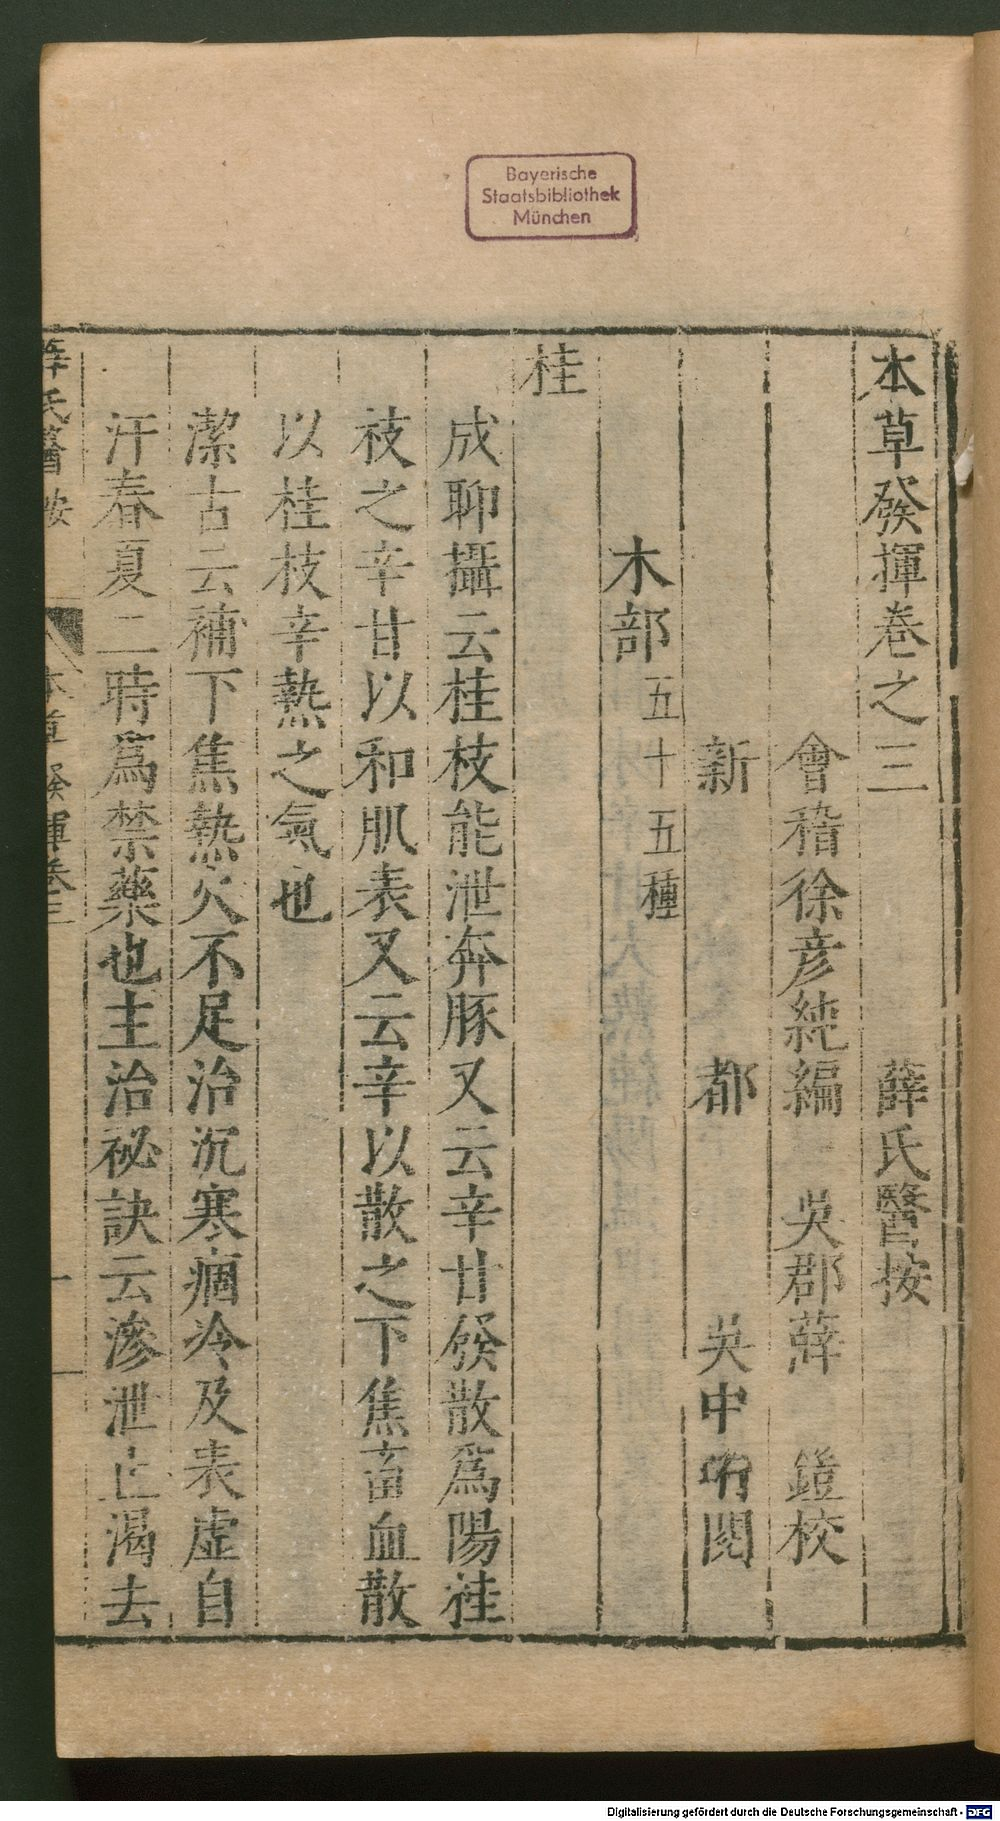 Bayerische
Staatsbibliothek
München
本草發揮卷之三 薛氏醫按
會稽徐彥純編 吳郡薛 鎧校
新都 吳中珩閱
木部五十五種
桂
成聊攝云桂枝能泄奔豚又云辛甘發散爲陽桂
枝之辛甘以和肌表又云辛以散之下焦畜血散
以桂枝辛熱之氣也
潔古云補下焦熱火不足治沉寒痼冷及表虛自
汗春夏二時爲禁藥也主治祕訣云滲泄止渴去
薛氏醫按 本草發揮卷三 一
Digitalisierung gefördert durch die Deutsche Forschungsgemeinschaft - DFG